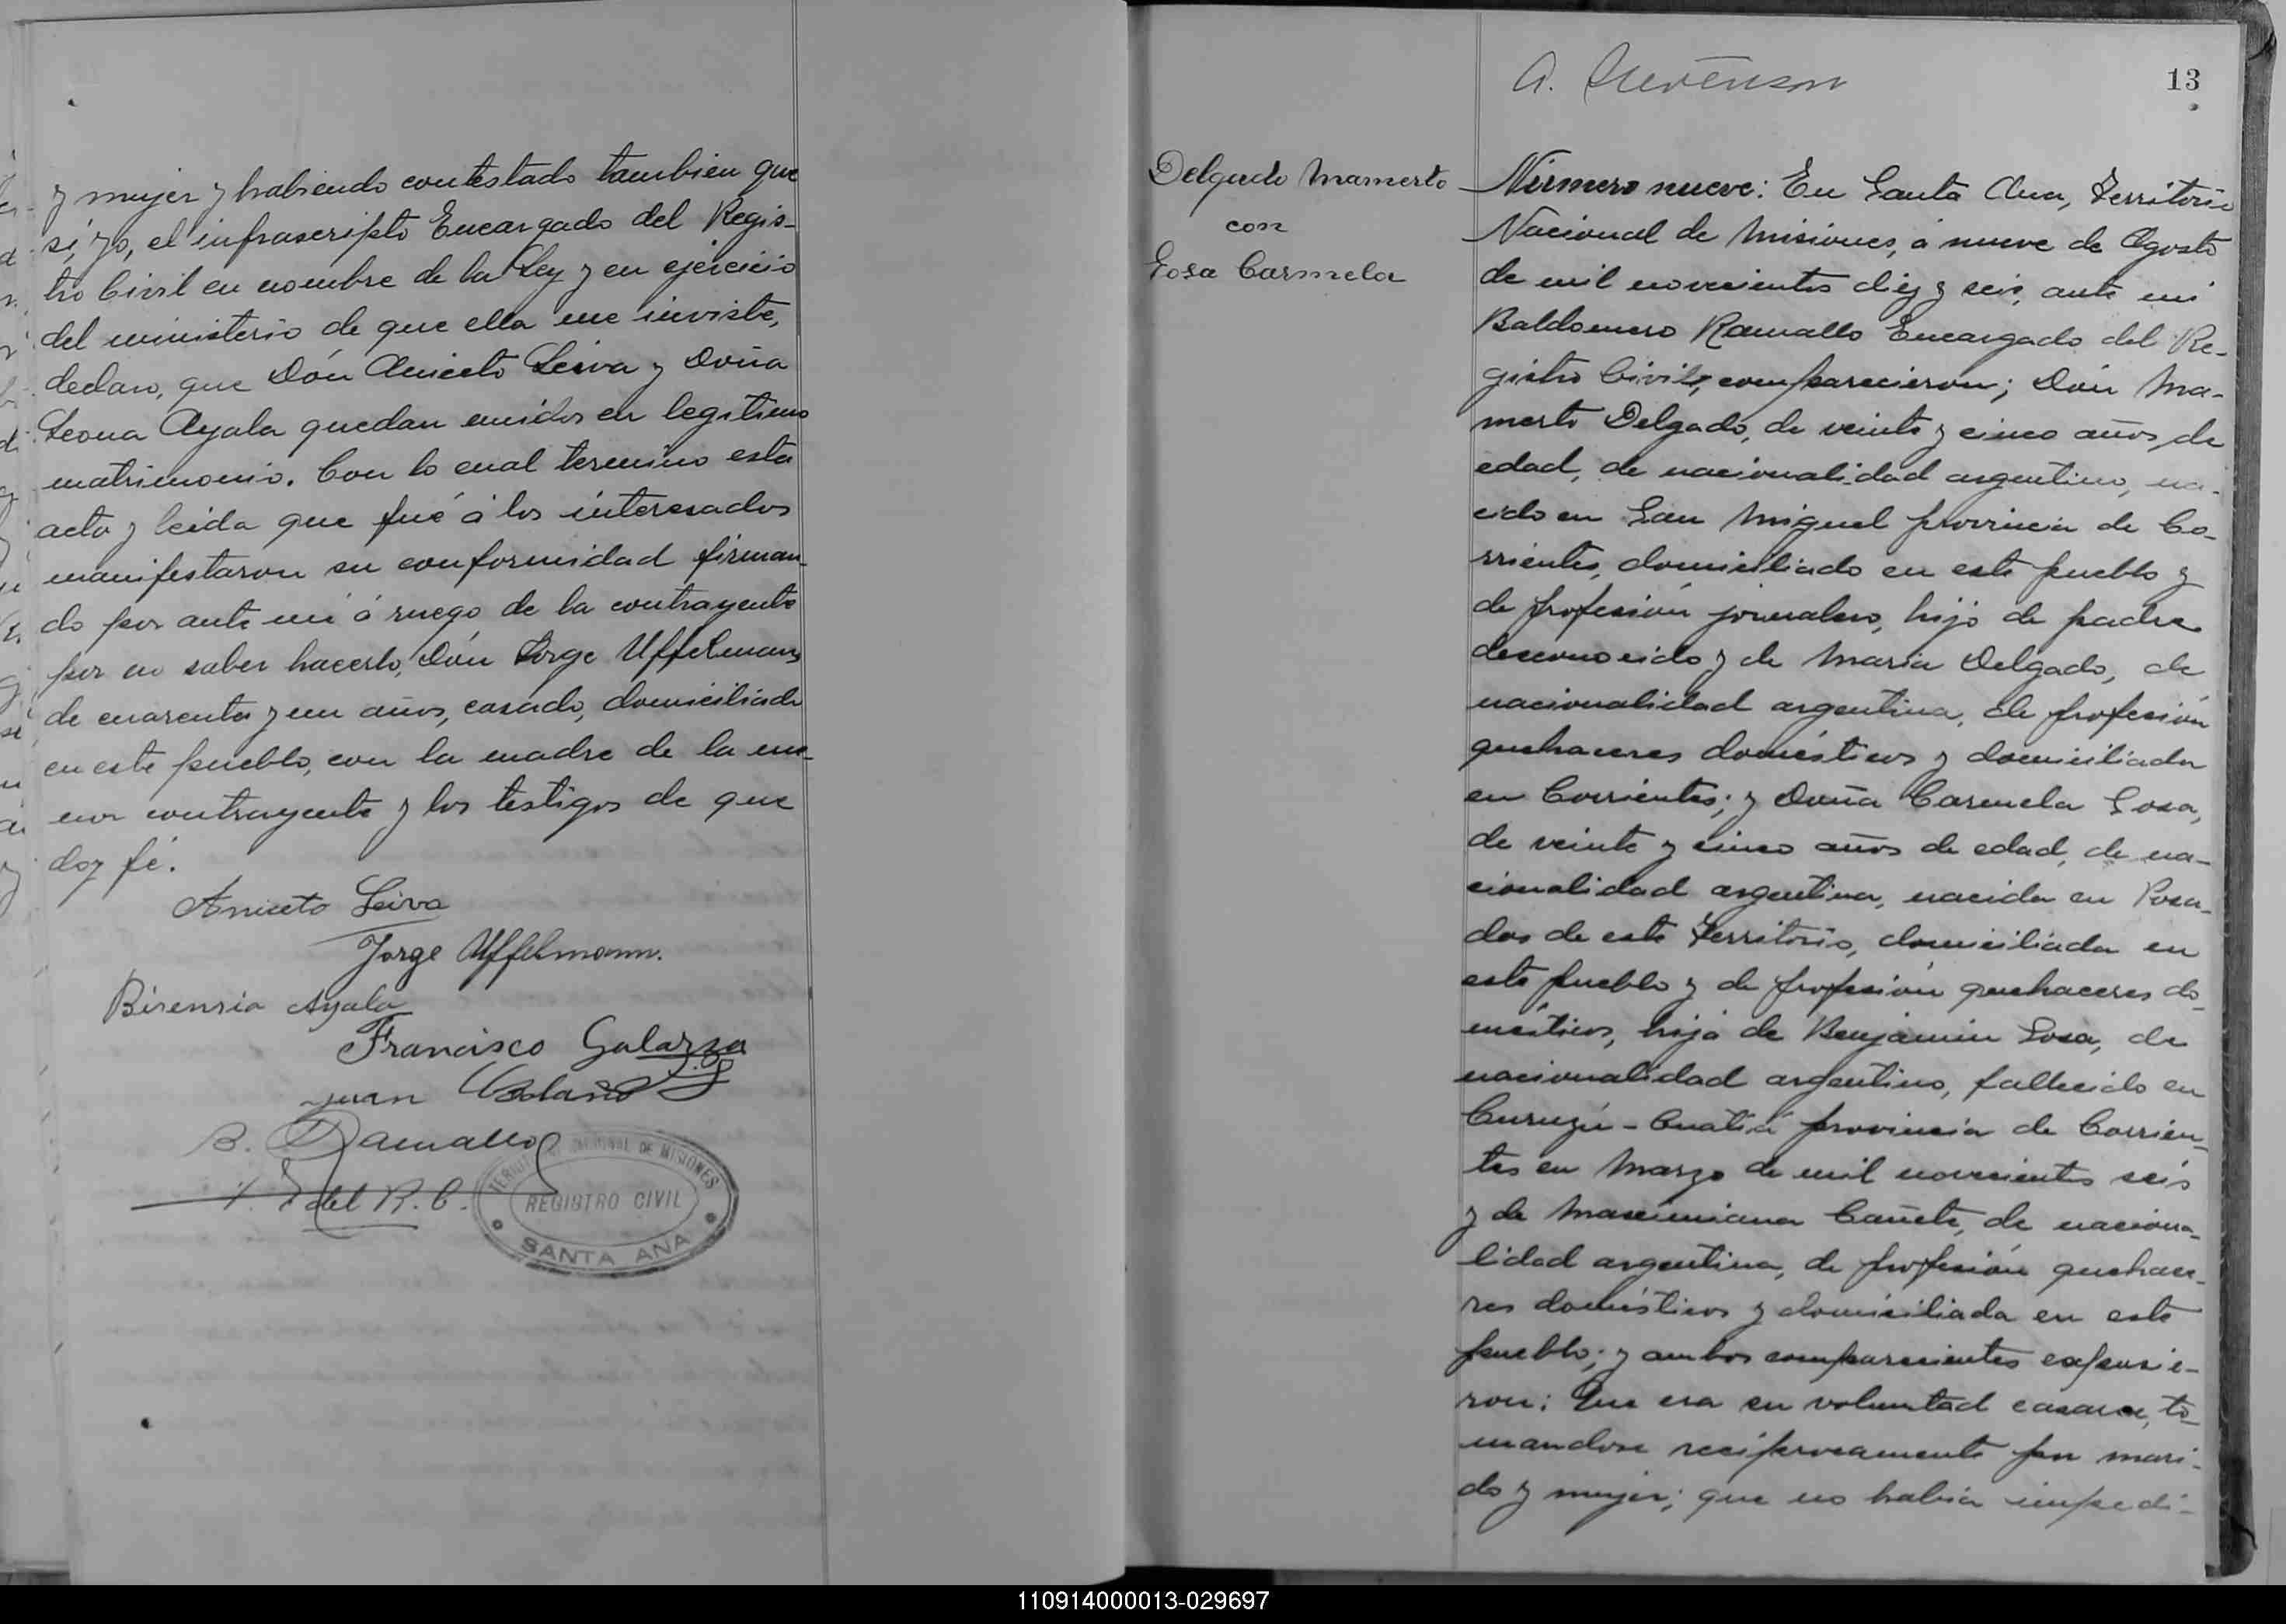 y mujer y habiendo contestado tambien que
sí, yo, el infrascripto Encargado del Regis-
tro Civil en nombre de la Ley y en ejercicio
del ministerio de que ella me inviste,
declaro, que Dón Aniceto Leiva y Doña
Leona Ayala quedan unidos en legitimo
matrimonio. Con lo cual termino esta
acta y leida que fué á los interesados
manifestaron su conformidad firman-
do por ante mi á ruego de la contrayente
por no saber hacerlo, Dón Jorge Uffelmann
de cuarenta y un años, casado, domiciliado
en este pueblo, con la madre de la me-
nor contrayente y los testigos de que
doy fé.
Aniceto Leiva
Jorge Uffelmann.
Ayala
Francisco Galarza
Juan
B. Ramallo
E del R. C.
TERRITORIO NACIONAL DE MISIONES
REGISTRO CIVIL
SANTA ANA
A. Stevenson
13
Delgado Mamerto
con
Sosa Carmela
Número nueve: En Santa Ana, Territorio
Nacional de Misiones, á nueve de Agosto
de mil novecientos diez y seis, ante mi
Baldomero Ramallo Encargado del Re-
gistro Civil, comparecieron; Dón Ma-
merto Delgado, de veinte y cinco años de
edad, de nacionalidad argentino, na-
cido en San Miguel provincia de Co-
rrientes, domiciliado en este pueblo y
de profesión jornalero, hijo de padre
desconocido y de Maria Delgado, de
nacionalidad argentina, de profesión
quehaceres domésticos y domiciliada
en Corrientes; y Doña Carmela Sosa,
de veinte y cinco años de edad, de na-
cionalidad argentina, nacida en Posa-
das de este Territorio, domiciliada en
este pueblo y de profesión quehaceres do-
mésticos, hija de Benjamin Sosa, de
nacionalidad argentino, fallecido en
Curuzú-Cuatiá provincia de Corrien-
tes en Marzo de mil novecientos seis
y de Maximiana Cañete, de naciona-
lidad argentina, de profesión quehace-
res domésticos y domiciliada en este
pueblo; y ambos comparecientes expusie-
ron: Que era su voluntad casarse, to-
mandose reciprocamente por mari-
do y mujer; que no habia impedi-
110914000013-029697